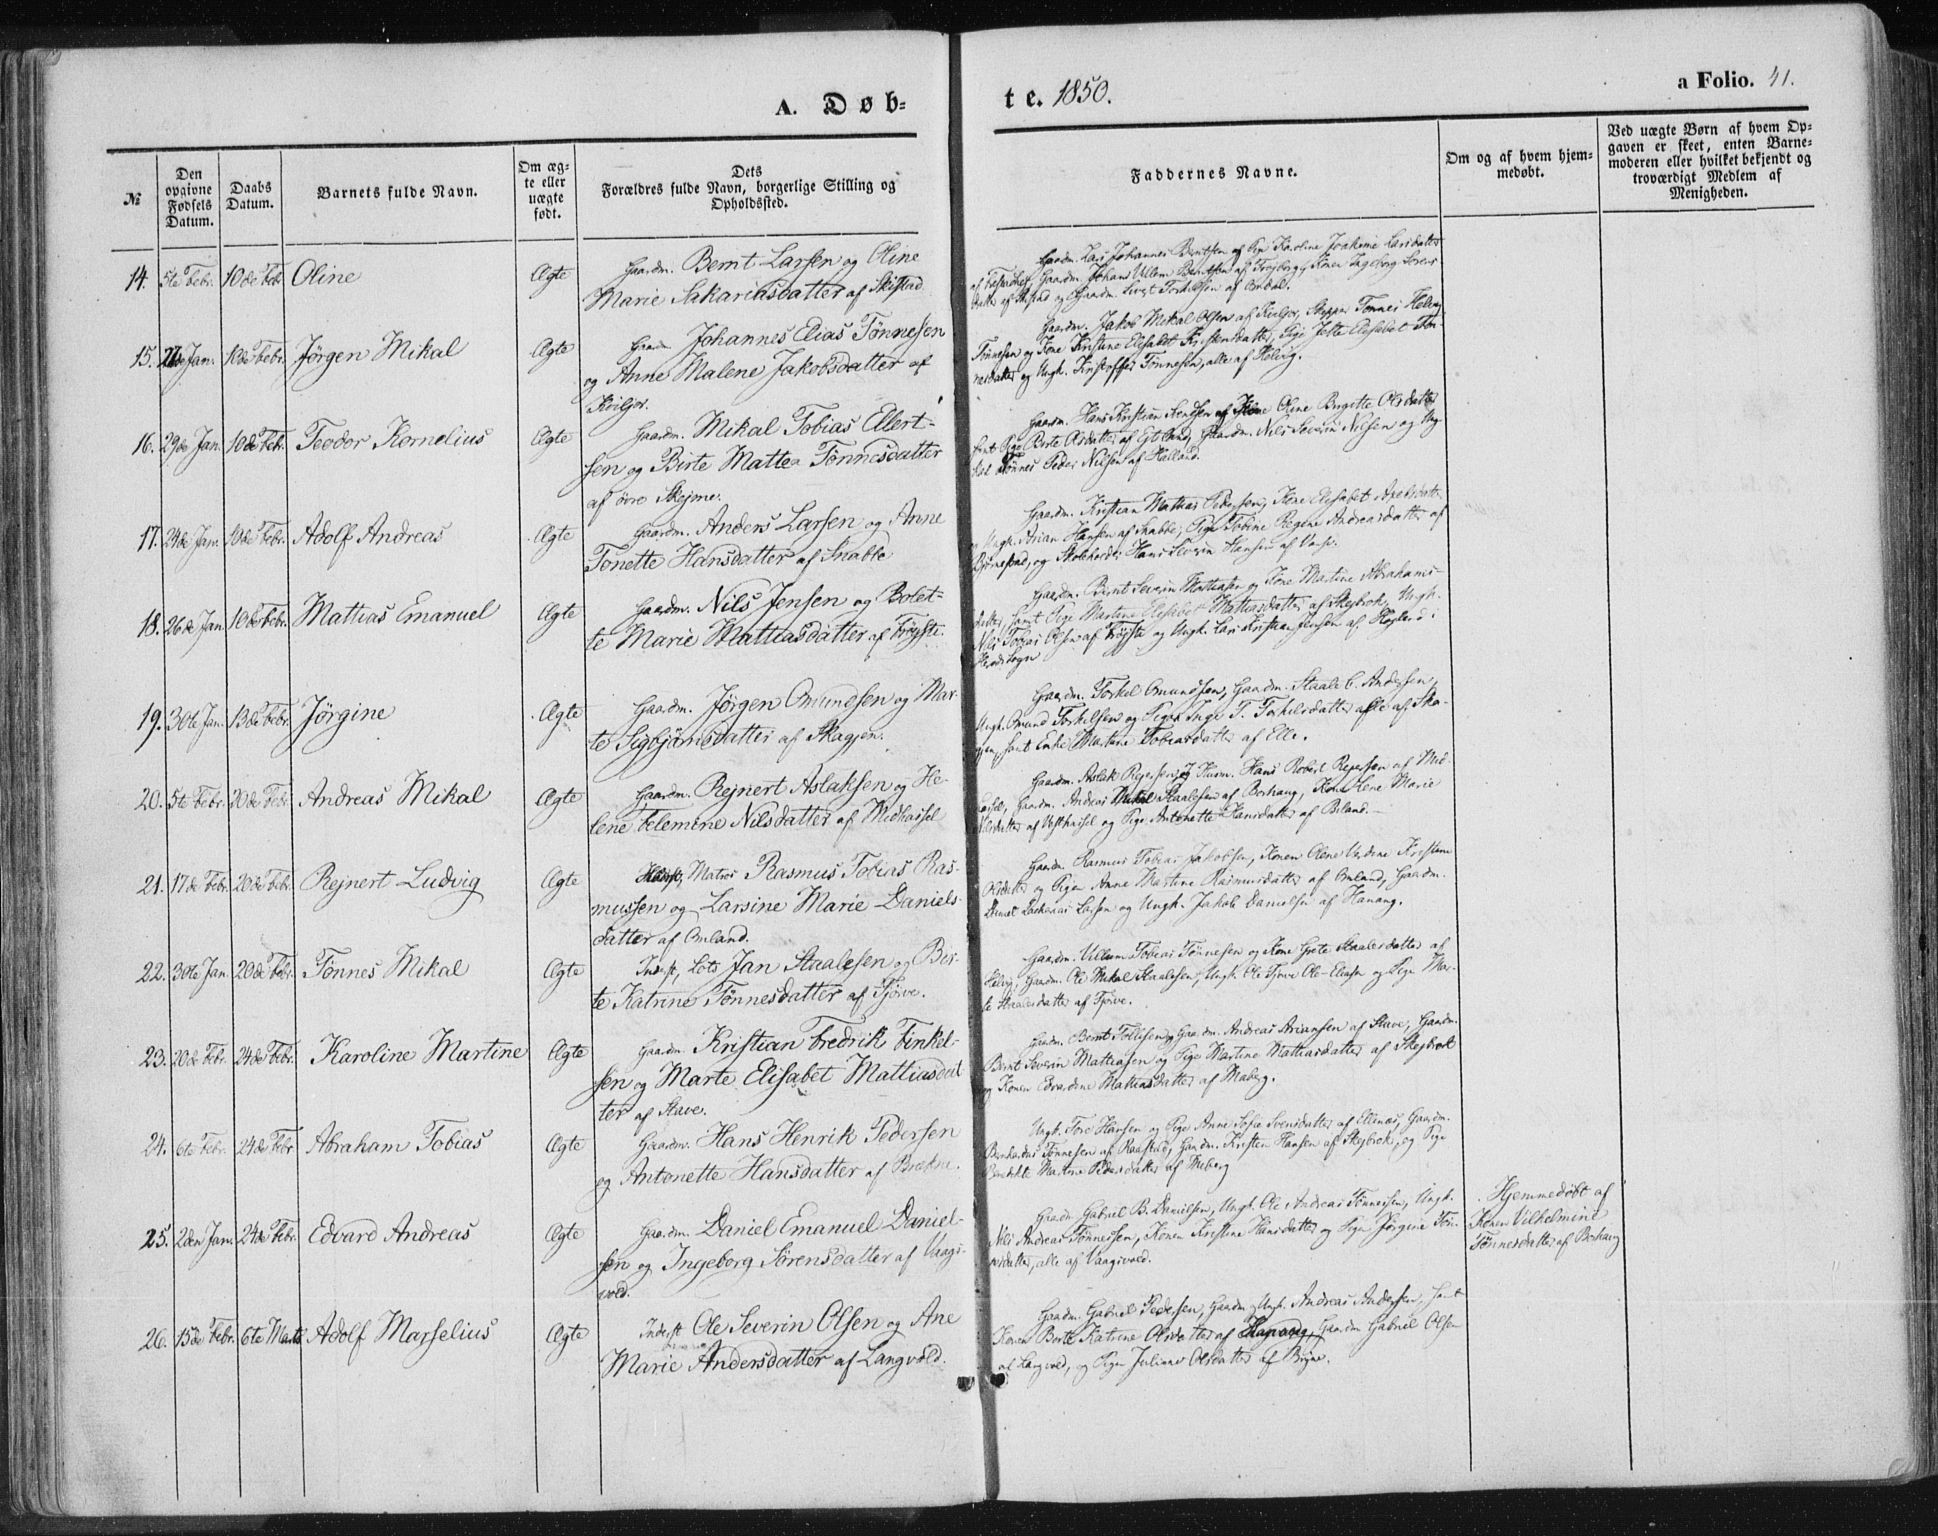 A. Døb-
te. 1850.
a Folio. 41.
№
Den opgivne Fødsels Datum.
Daabs Datum.
Barnets fulde Navn.
Om ægte eller uægte født.
Dets Forældres fulde Navn, borgerlige Stilling og Opholdssted.
Faddernes Navne.
Om og af hvem hjemmedøbt.
Ved uægte Børn af hvem Opgaven er skeet, enten Barnemoderen eller hvilket bekjendt og troværdigt Medlem af Menigheden.
14. 5te Febr. 10de Febr. Oline Ægte Gaardm. Bernt Larsen og Oline
Marie Sakariasdatter af Skistad
Gaardm. Lars Johannes Berntsen og Pige Karoline Joakime Larsdatter
Gaardm. Johans Villem Berntsen af Konen Ingeborg Sørens
datter af Skistad og Gaardm. Sivert Torkelsen af
15. Jan. 10de Febr. Jørgen Mikal Ægte Johannes Elias Tønnesen
og Anne Malene Jakobsdatter af
Kviljor.
Gaardm. Jakob Mikal Olsen af Kviljor, Skipper Tønnes Helvig
Tønnesen og Kone Kristine Elisabet Kristensdatter, Pige Jette Elisabet Tøn-
nesdatter og Ungk. Kristoffer Tønnesen, alle af Helvig.
16. 29de Jan. 10de Febr. Teodor Kornelius Ægte Gaardm. Mikal Tobias Ellert-
sen og Birte Mattea Tønnesdatter
af övre Skejme.
Gaardm. Hans Kristian Svendsen og Kone Oline Birgitte Olsdatter
samt Pige Berte Olsdatter af Gaardm. Nils Severin Nilsen og Ung
karl Tønnes Peder Nilsen af Halland.
17. 24de Jan. 10de Febr. Adolf Andreas Ægte Gaardm. Anders Larsen og Anne
Tonette Hansdatter af Snabbe
Gaardm. Kristian Mathias Pedersen, Kone Elisabet
Ungk. Adrian Hansen af Snabbe, Pige Tobine Regine Andreasdatter af
Bjørnestad, og Skoleholder Hans Severin Hansen af Vanse.
18. 26de Jan. 10de Febr. Mattias Emanuel Ægte Gaardm. Nils Jensen og Bolet-
te Marie Mattiasdatter af Frøyste.
Gaardm. Bernt Severin Mattiasen og Kone Martine Abrahams-
datter, samt Pige Martine Elisabet Mattiasdatter af Skejbrok, Ungk.
Nils Tobias Olsen af Frøyste og Ungk. Lars Kristian Jensen af Høyland i
Herads Sogn
19. 30te Jan. 13de Febr. Jørgine Ægte Gaardm. Jørgen Omundsen og Mar-
te Sigbjørnsdatter af Skagjen.
Gaardm. Torkel Omundsen, Gaardm. Staale C. Andersen,
Ungk. Omund Torkelsen og Pigen Inge T. Torkelsdatter alle af Ska-
gjen, samt Enke Martine Tobiasdatter af Elle.
20. 5te Febr. 20de Febr. Andreas Mikal Ægte Gaardm. Rejnert Aslaksen og He-
lene Velemine Nilsdatter af Midhassel
Gaardm. Aslak Rejersen, og Husm. Hans Robert Rejersen af Mid-
hassel, Gaardm. Andreas Mikal Staalesen af Borhaug, Kone Lene Marie
Nilsdatter af Vesthassel og Pige Antonette Hansdatter af Briland.
21. 17de Febr. 20de Febr. Rejnert Ludvig Ægte Matros Rasmus Tobias Ras-
mussen og Larsine Marie Daniels-
datter af Omland.
Gaardm. Rasmus Tobias Jakobsen, Konen Olene Kristine
Olsdatter og Pigen Anne Martine Rasmusdatter af Omland, Gaardm.
Daniel Zacharias Larsen og Ungk. Jakob Danielsen af Hanang.
22. 30te Jan. 20de Febr. Tønnes Mikal Ægte Inderst, Lots Jan Staalesen og Ber-
te Katrine Tønnesdatter af Tjørve.
Gaardm. Villum Tobias Tønnesen og Kone Grete Staalesdatter af
Helvig, Gaardm. Ole Mikal Staalesen, Ungk. Ole Tjørve Ole-Eliasen og Pige Mar-
te Staalesdatter af Tjørve.
23. 20de Febr. 24de Febr. Karoline Martine Ægte Gaardm. Kristian Fredrik Finkel-
sen og Marte Elisabet Mattiasdat
ter af Stave.
Gaardm. Bernt Tollisen og Gaardm. Andreas Ariansen af Stave, Gaardm.
Bernt Severin Mattiasen og Pige Martine Mattiasdatter af Skejbrok
og Konen Edvardine Mattiasdatter af Maberg.
24. 6te Febr. 24de Febr. Abraham Tobias Ægte Gaardm. Hans Henrik Pedersen
og Antonette Hansdatter af Brækne.
Ungk. Tore Hansen og Pige Anne Sofie Svensdatter af Ellenes, Gaardm.
Bernhardus Tønnesen af Raastad, Gaardm. Kristen Hansen af Skejbrok, og Pige
Bendikte Martine Pedersdatter af Meberg
25. 2den Jan. 24de Febr. Edvard Andreas Ægte Gaardm. Daniel Emanuel Daniel-
sen og Ingeborg Sørensdatter af Vaags-
vold.
Gaardm. Gabriel B. Danielsen, Ungk. Ole Andreas Tønnessen, Ungk.
Nils Andreas Tønnessen, Konen Kristine Hansdatter og Pigen Jørgine Tøn-
nesdatter, alle af Vaagsvold.
Hjemmedøbt af
Konen Vilhelmine
Tønnesdatter af Borhaug
26. 15de Febr. 6te Marts Adolf Marselius Ægte Inderst Ole Severin Olsen og Ane
Marie Andersdatter af Langvold.
Gaardm. Gabriel Pedersen, Gaardm. Ungk. Andreas Andersen, samt
Konen Berte Katrine Olsdatter af Hanang, Gaardm. Gabriel Olsen
af Langvold, og Pigen Juliane Olsdatter af Bryne.